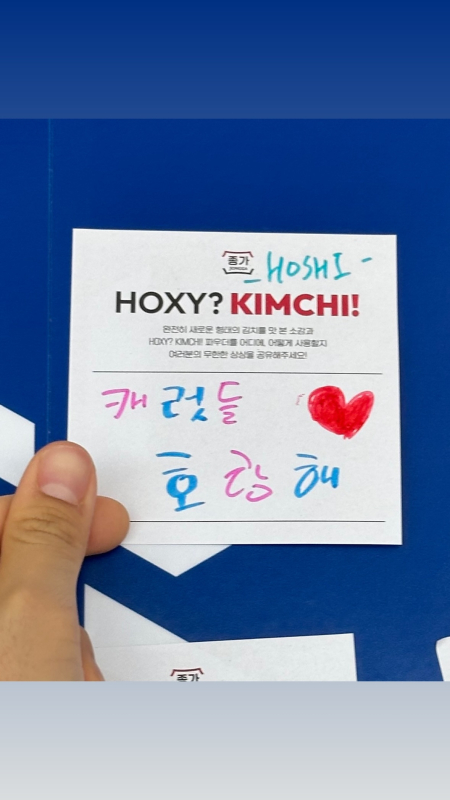 종가
JONGGA
-HOSHI-
HOXY? KIMCHI!
완전히 새로운 형태의 김치를 맛 본 소감과
HOXY? KIMCHI! 파우더를 어디에, 어떻게 사용할지
여러분의 무한한 상상을 공유해주세요!
캐럿들
호랑해
종가